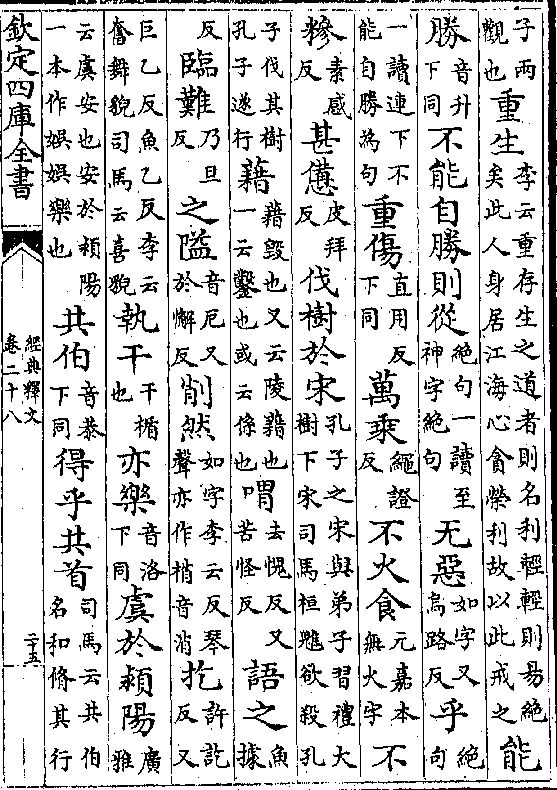 子兩觀也重生李云重存生之道者則名利輕輕則易絶矣此人身居江海心貪榮利故以此戒之能
勝音升下同不能自勝則從絶句一讀至神字絶句无惡如字又烏路反乎絶句
一讀連下不能自勝為句重傷直用反下同萬乘繩證反不火食元嘉本無火字不
糝素感反甚憊皮拜反伐樹於宋孔子之宋與弟子習禮大樹下宋司馬桓魋欲殺孔
子伐其樹孔子遂行藉藉毀也又云陵藉也一云鑿也或云係也喟去愧反又苦怪反語之魚據
反臨難乃旦反之隘音厄又於懈反削然如字李云反琴聲亦作梢音消扢許訖反又
巨乙反魚乙反李云奮舞貌司馬云喜貌執干干楯也亦樂音洛下同虞於頴陽廣雅
云虞安也安於頴陽一本作娯娯樂也共伯音恭下同得乎共首司馬云共伯名和脩其行
欽定四庫全書
經典釋文
卷二十八
二十五